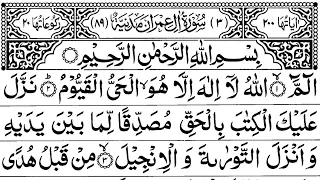 اٰیَاتُهَا ٢٠٠ (٣) سُوْرَةُ اٰلِ عِمْرٰنَ مَدَنِيَّةٌ (٨٩) رُكُوْعَاتُهَا ٢٠
بِسْمِ اللّٰهِ الرَّحْمٰنِ الرَّحِيْمِ
الٓمّٓ ۝١ اللّٰهُ لَاۤ اِلٰهَ اِلَّا هُوَ الْحَیُّ الْقَیُّوْمُ ۝٢ نَزَّلَ
عَلَیْكَ الْكِتٰبَ بِالْحَقِّ مُصَدِّقًا لِّمَا بَیْنَ یَدَیْهِ
وَ اَنْزَلَ التَّوْرٰىةَ وَ الْاِنْجِیْلَ ۝٣ مِنْ قَبْلُ هُدًى